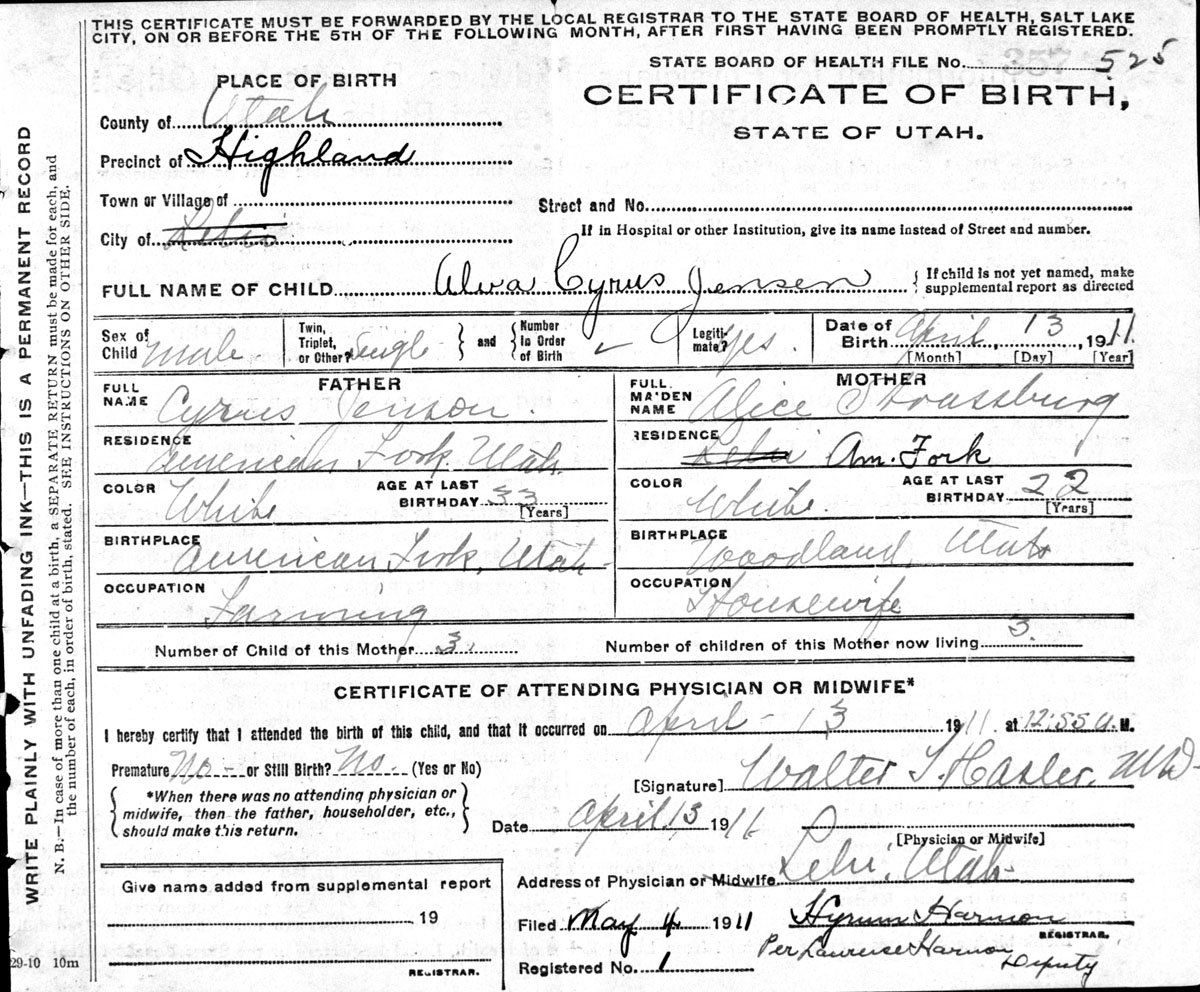 THIS CERTIFICATE MUST BE FORWARDED BY THE LOCAL REGISTRAR TO THE STATE BOARD OF HEALTH, SALT LAKE
CITY, ON OR BEFORE THE 5TH OF THE FOLLOWING MONTH, AFTER FIRST HAVING BEEN PROMPTLY REGISTERED.
STATE BOARD OF HEALTH FILE No. 357 525
PLACE OF BIRTH
CERTIFICATE OF BIRTH,
STATE OF UTAH.
County of Utah
Precinct of Highland
Town or Village of
Street and No.
City of Lehi
If in Hospital or other Institution, give its name instead of Street and number.
FULL NAME OF CHILD Alva Cyrus Jensen { If child is not yet named, make
supplemental report as directed
Sex of Child Male
Twin, Triplet, or Other? Single } and { Number in Order of Birth ✓
Legiti- mate? Yes
Date of Birth April 13, 1911
[Month] [Day] [Year]
FATHER
FULL NAME Cyrus Jenson.
RESIDENCE American Fork, Utah.
COLOR White
AGE AT LAST BIRTHDAY 33 [Years]
BIRTHPLACE American Fork, Utah-
OCCUPATION Farming
MOTHER
FULL MAIDEN NAME Alice Strassburg
RESIDENCE Lehi Am. Fork
COLOR White.
AGE AT LAST BIRTHDAY 22 [Years]
BIRTHPLACE Woodland, Utah
OCCUPATION Housewife
Number of Child of this Mother 3.
Number of children of this Mother now living 3.
CERTIFICATE OF ATTENDING PHYSICIAN OR MIDWIFE*
I hereby certify that I attended the birth of this child, and that it occurred on April - 13 1911. at 12:55 a. M.
Premature No - or Still Birth? No. (Yes or No)
[Signature] Walter T. Hasler, MD-
{ *When there was no attending physician or
midwife, then the father, householder, etc.,
should make this return. }
Date April 13 1911.
[Physician or Midwife]
Address of Physician or Midwife Lehi, Utah-
Give name added from supplemental report
19
REGISTRAR.
Filed May 4 1911 Hyrum Harmon
REGISTRAR.
Per Harmon
Deputy
Registered No. 1
29-10 10m
WRITE PLAINLY WITH UNFADING INK—THIS IS A PERMANENT RECORD
N. B.—In case of more than one child at a birth, a SEPARATE RETURN must be made for each, and
the number of each, in order of birth, stated. SEE INSTRUCTIONS ON OTHER SIDE.